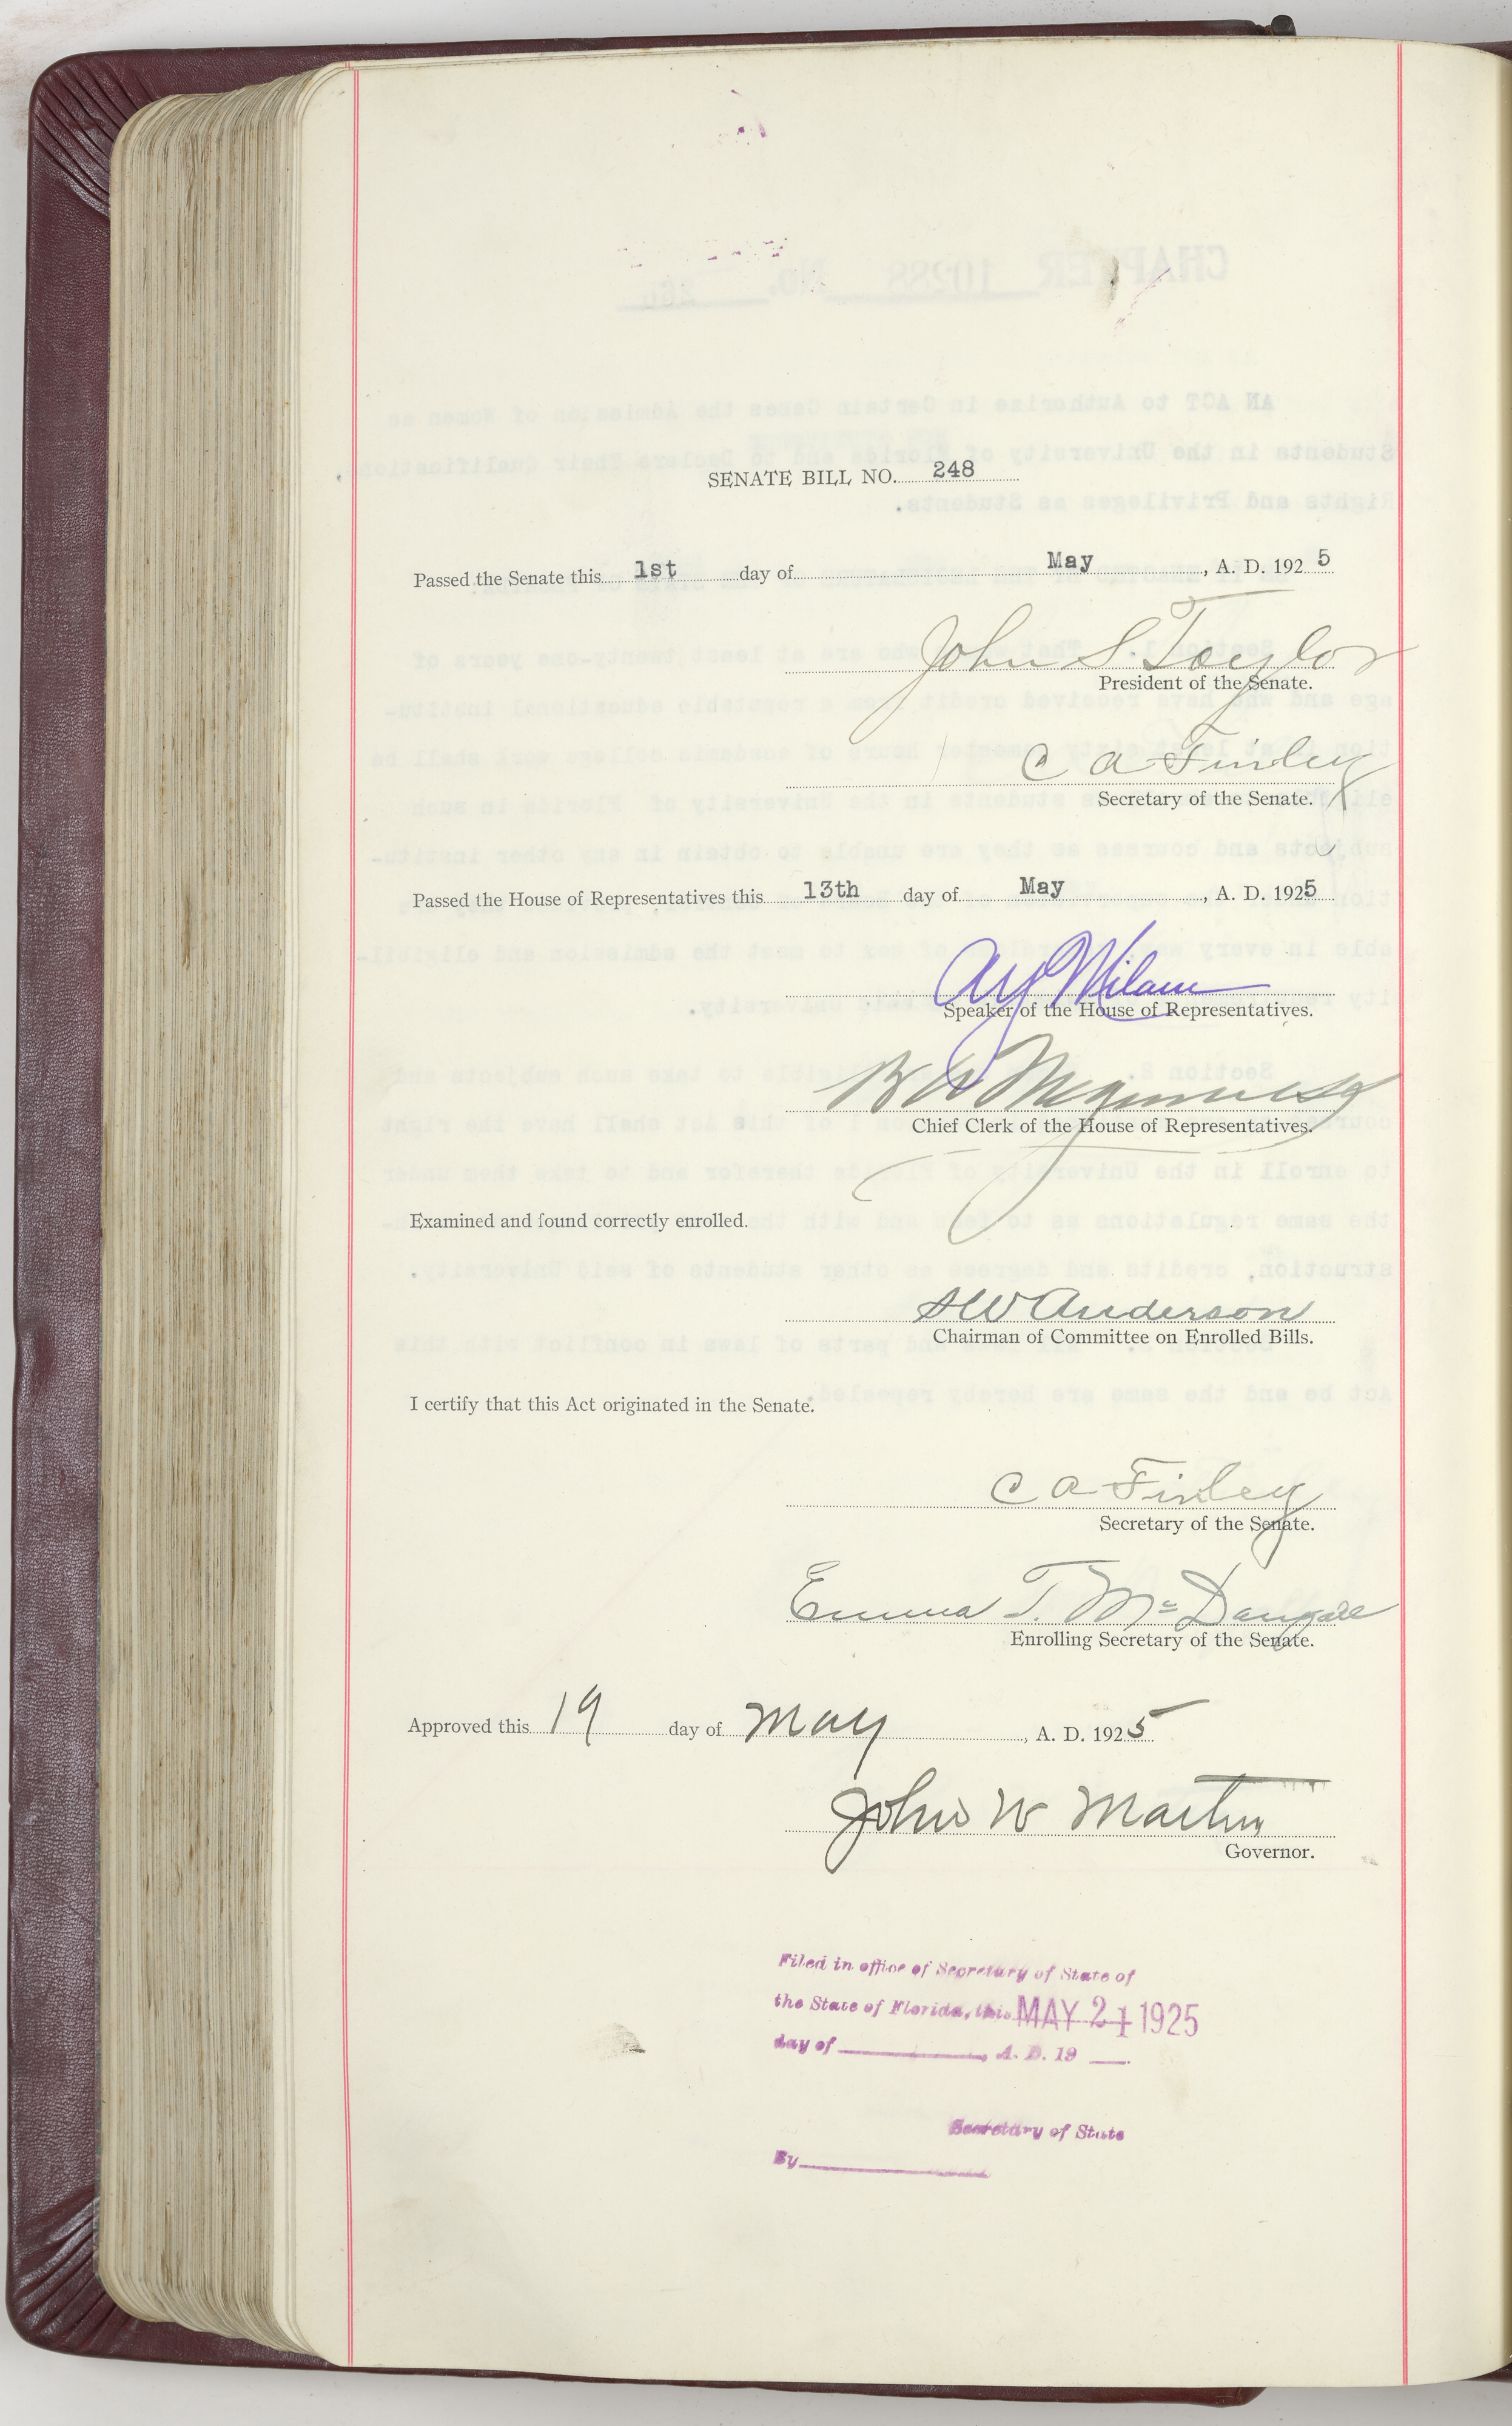 SENATE BILL NO. 248
Passed the Senate this 1st day of May, A. D. 1925
John S Taylor
President of the Senate.
C A Finley
Secretary of the Senate.
Passed the House of Representatives this 13th day of May, A. D. 1925
A Y Milam
Speaker of the House of Representatives.
B A
Chief Clerk of the House of Representatives.
Examined and found correctly enrolled.
S W Anderson
Chairman of Committee on Enrolled Bills.
I certify that this Act originated in the Senate.
C A Finley
Secretary of the Senate.
Emma T. McDougall
Enrolling Secretary of the Senate.
Approved this 19 day of May, A. D. 1925
John W Martin
Governor.
Filed in office of Secretary of State of
the State of Florida, this MAY 21 1925
day of , A. D. 19
Secretary of State
By